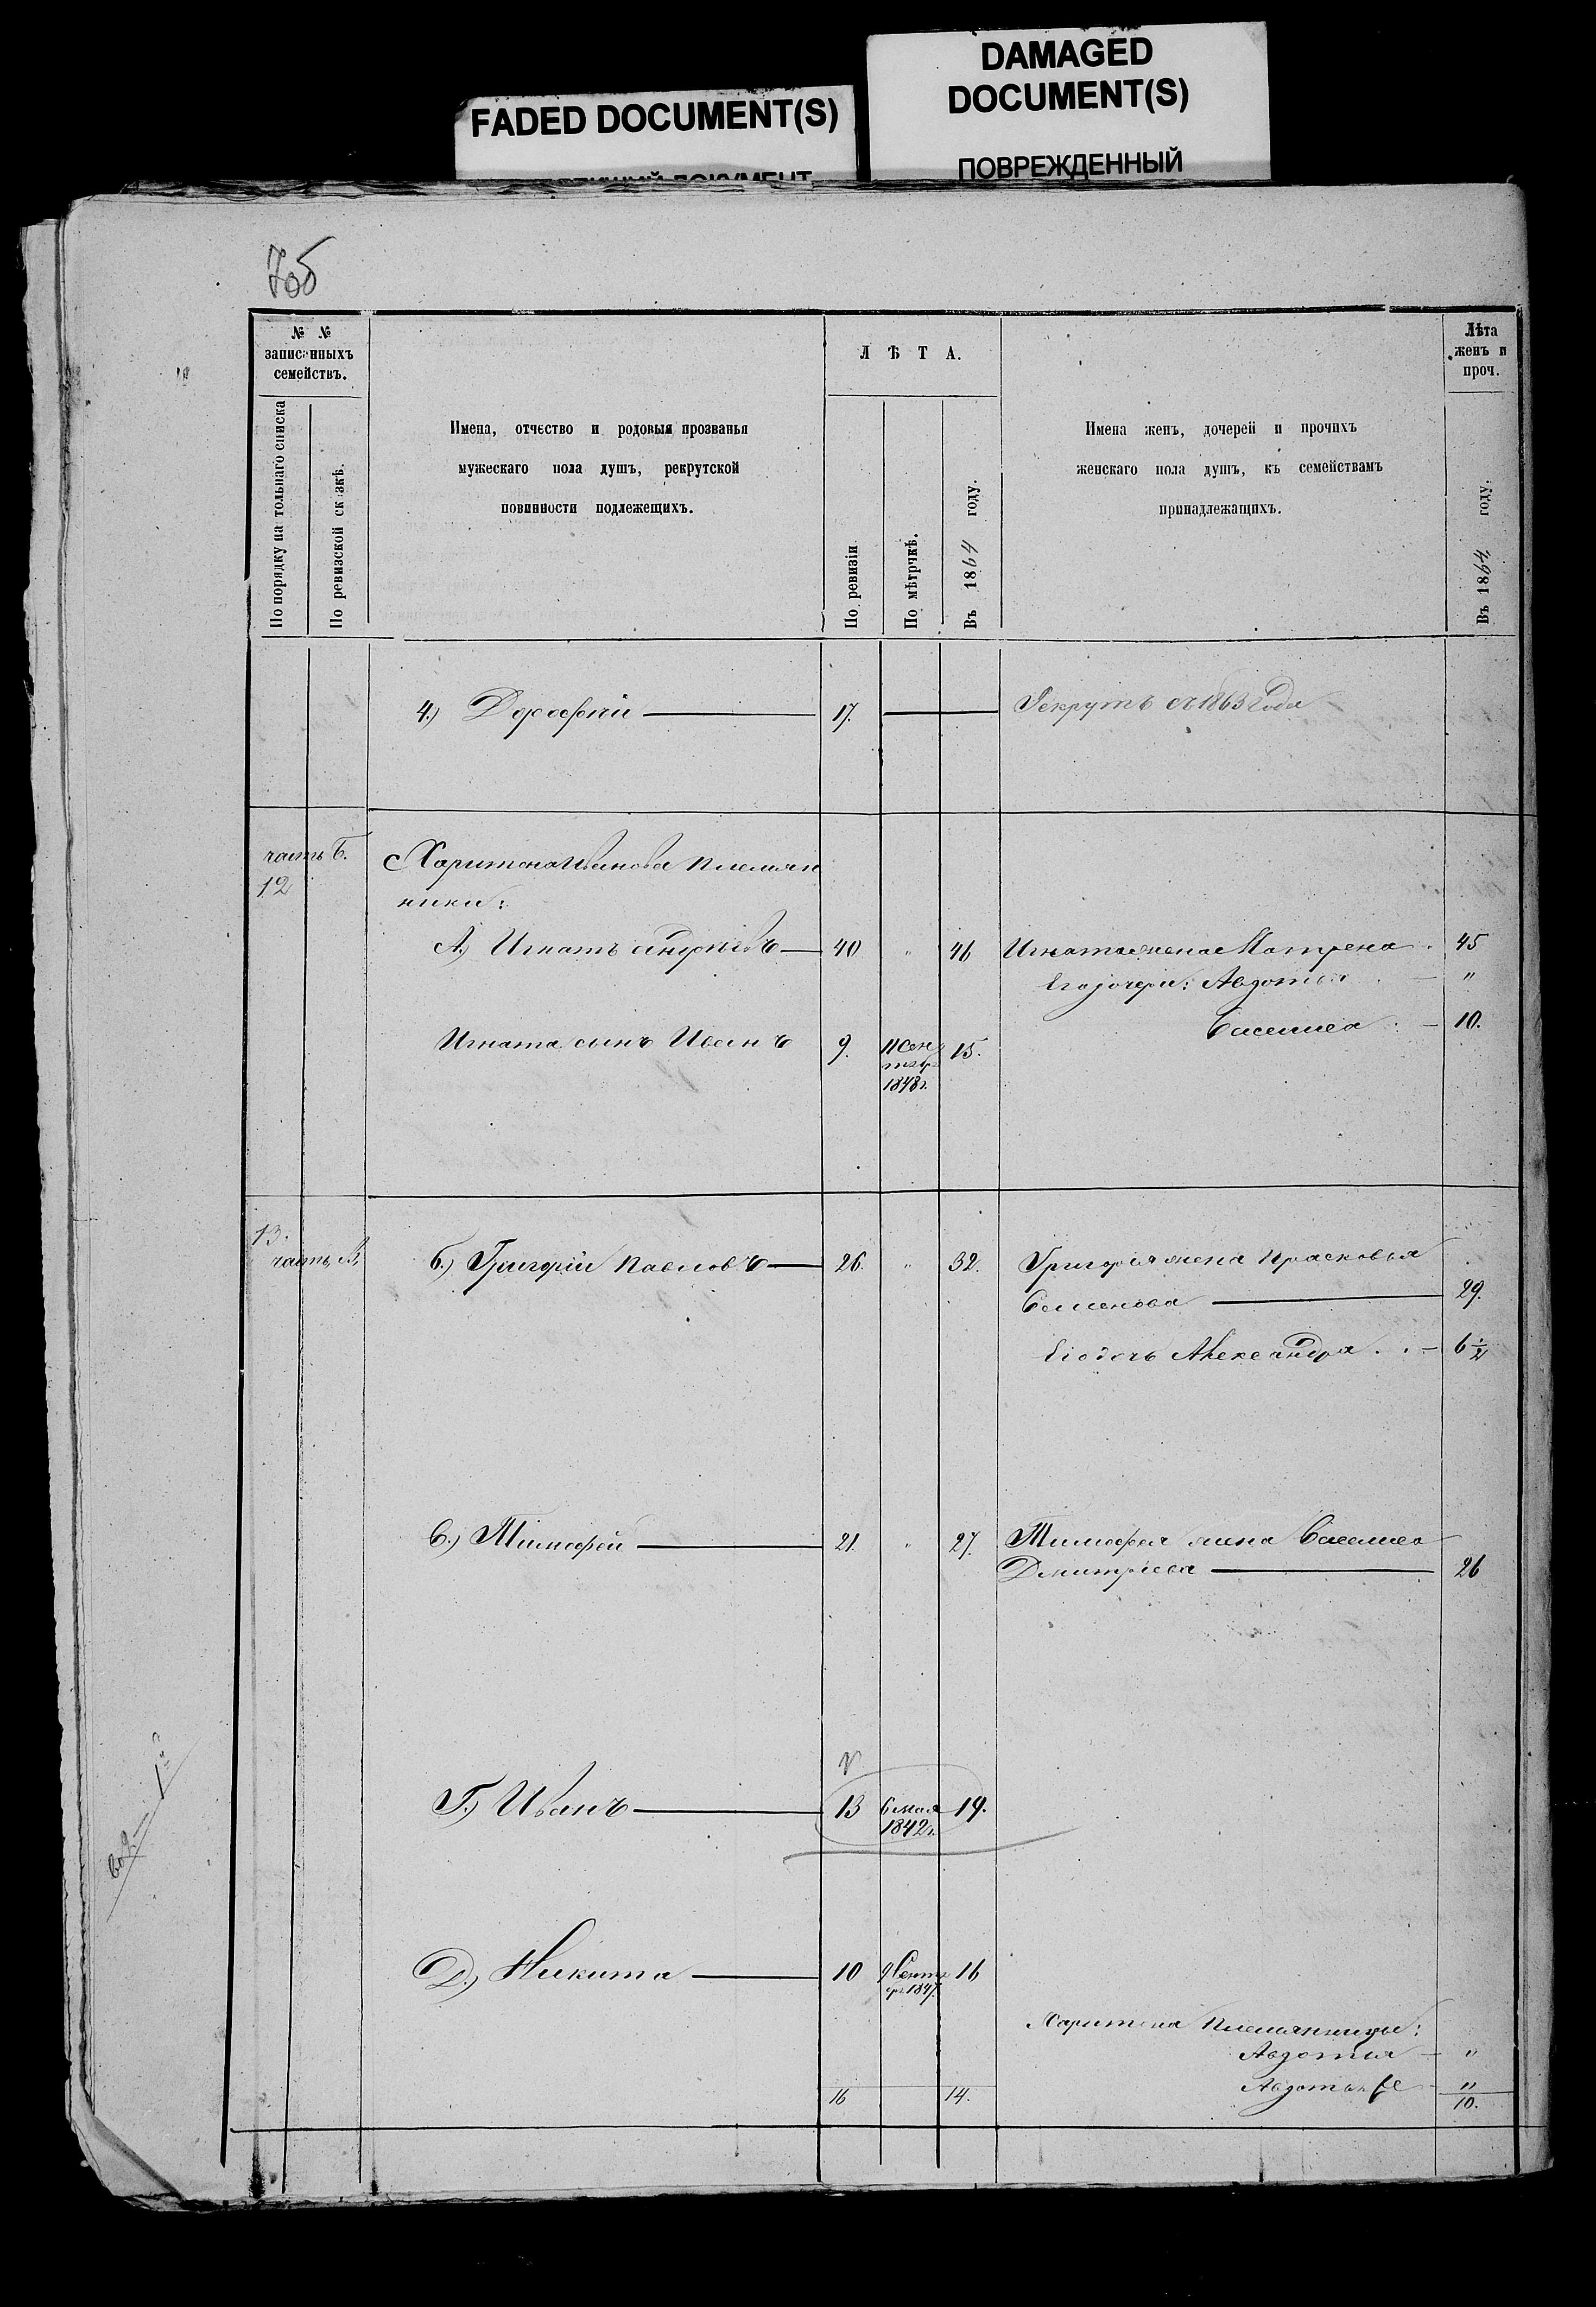 FADED DOCUMENT(S)
DAMAGED
DOCUMENT(S)
ПОВРЕЖДЕННЫЙ
№ №
записанныхъ
семействъ.
По порядку на тольнаго списка
По ревизской ск зкѣ.
Имена, отчество и родовыя прозванья
мужескаго пола душъ, рекрутской
повинности подлежещихъ.
ЛѢТА.
По ревизіи
По мѣтрчкѣ.
Въ 1864 году.
Имена женъ, дочерей и прочихъ
женскаго пола душъ, къ семействамъ
принадлежащихъ.
Лѣта
женъ и
проч.
Въ 1864 году.
4) Дорофѣй 17. Рекрутъ съ 1863 Года
часть Б.
12
Харитона Иванова племян
ники:
А) Игнатъ Андрѣевъ 40 " 46 Игнатажена Матрена 45
Его дочери: Авдотья "
Василиса 10.
Игната сынъ Иванъ 9. 11 Сен
тяб
1848г.
15.
13.
часть А.
б.) Григорій Павловъ 26. " 32. Григорія жена Прасковья
Семенова 29.
Его дочь Александра 6 1/2
В.) Тимофей 21. " 27. Тимофея жена Василиса
Дмитріева 26
Г.) Иванъ 13 6 мая 19.
1842г.
Д.) Никита 10 9 Сентя 16
бр. 1847.
Харитона племянницы:
Авдотья "
Авдотья "
16 14. 10.